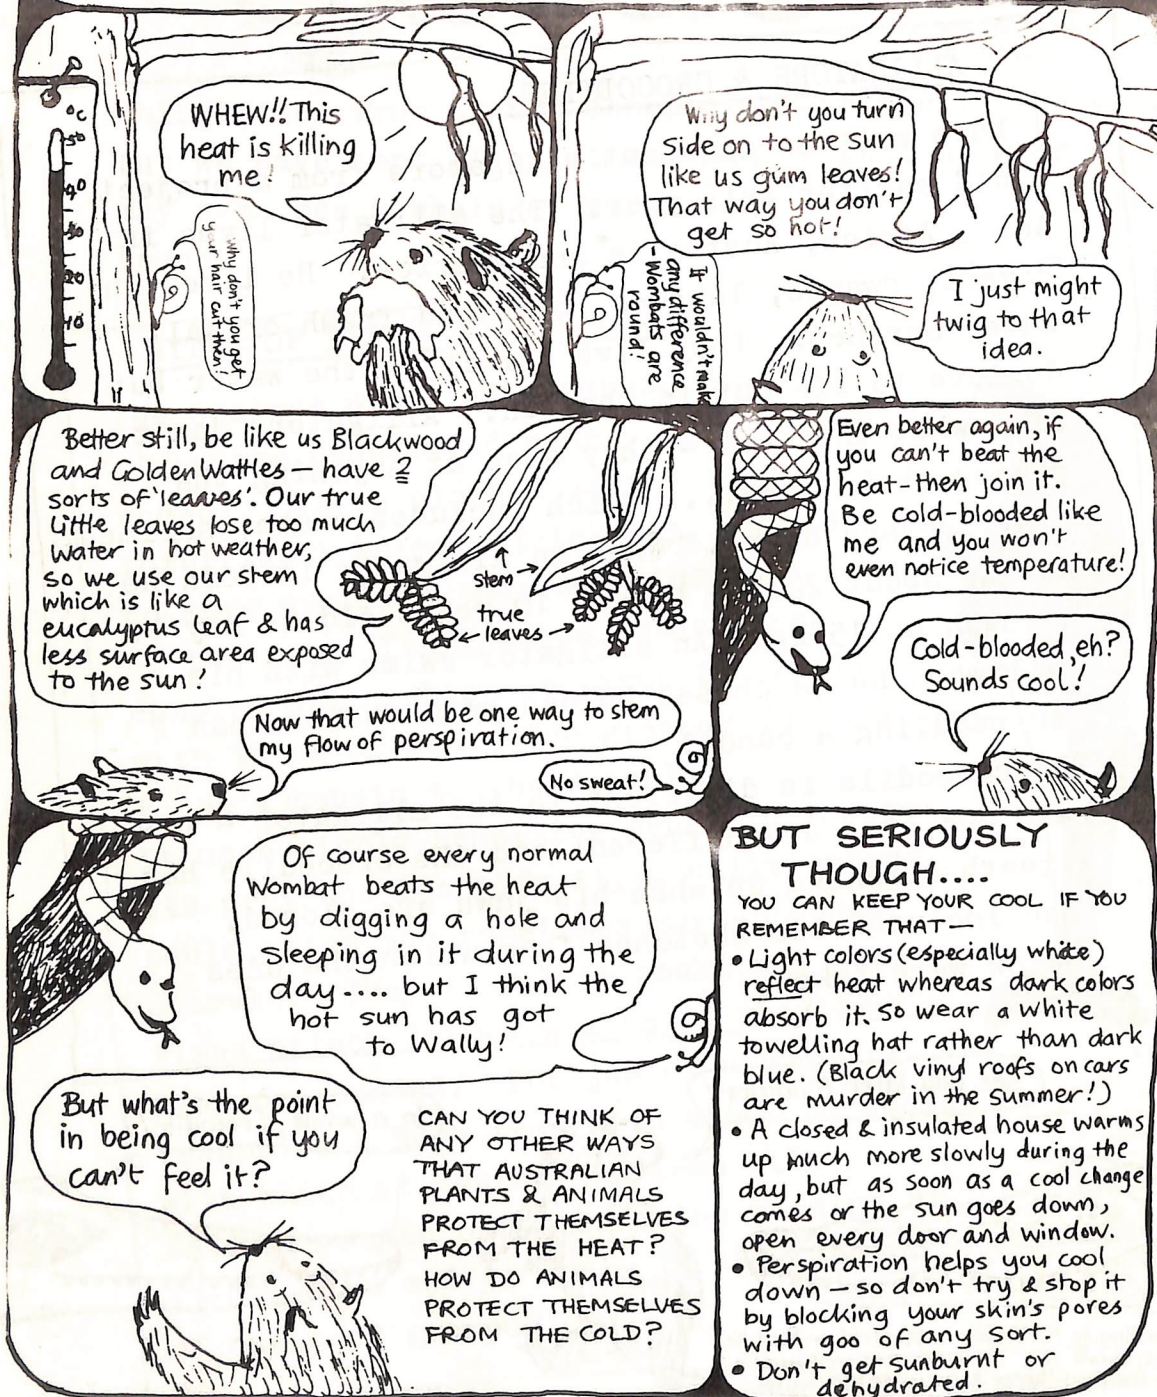 °C
50
40
30
20
10
WHEW!! This
heat is killing
me!
Why don't you get
your hair cut then!
Why don't you turn
side on to the sun
like us gum leaves!
That way you don't
get so hot!
It wouldn't make
any difference
- Wombats are
round!
I just might
twig to that
idea.
Better still, be like us Blackwood
and Golden Wattles – have 2
sorts of 'leaves'. Our true
little leaves lose too much
water in hot weather,
so we use our stem
which is like a
eucalyptus leaf & has
less surface area exposed
to the sun!
stem
true
leaves
Now that would be one way to stem
my flow of perspiration.
No sweat!
Even better again, if
you can't beat the
heat - then join it.
Be cold-blooded like
me and you won't
even notice temperature!
Cold-blooded, eh?
Sounds cool!
Of course every normal
Wombat beats the heat
by digging a hole and
sleeping in it during the
day.... but I think the
hot sun has got
to Wally!
But what's the point
in being cool if you
can't feel it?
CAN YOU THINK OF
ANY OTHER WAYS
THAT AUSTRALIAN
PLANTS & ANIMALS
PROTECT THEMSELVES
FROM THE HEAT?
HOW DO ANIMALS
PROTECT THEMSELVES
FROM THE COLD?
BUT SERIOUSLY
THOUGH....
YOU CAN KEEP YOUR COOL IF YOU
REMEMBER THAT—
• Light colors (especially white)
reflect heat whereas dark colors
absorb it. So wear a white
towelling hat rather than dark
blue. (Black vinyl roofs on cars
are murder in the summer!)
• A closed & insulated house warms
up much more slowly during the
day, but as soon as a cool change
comes or the sun goes down,
open every door and window.
• Perspiration helps you cool
down – so don't try & stop it
by blocking your skin's pores
with goo of any sort.
• Don't get sunburnt or
dehydrated.